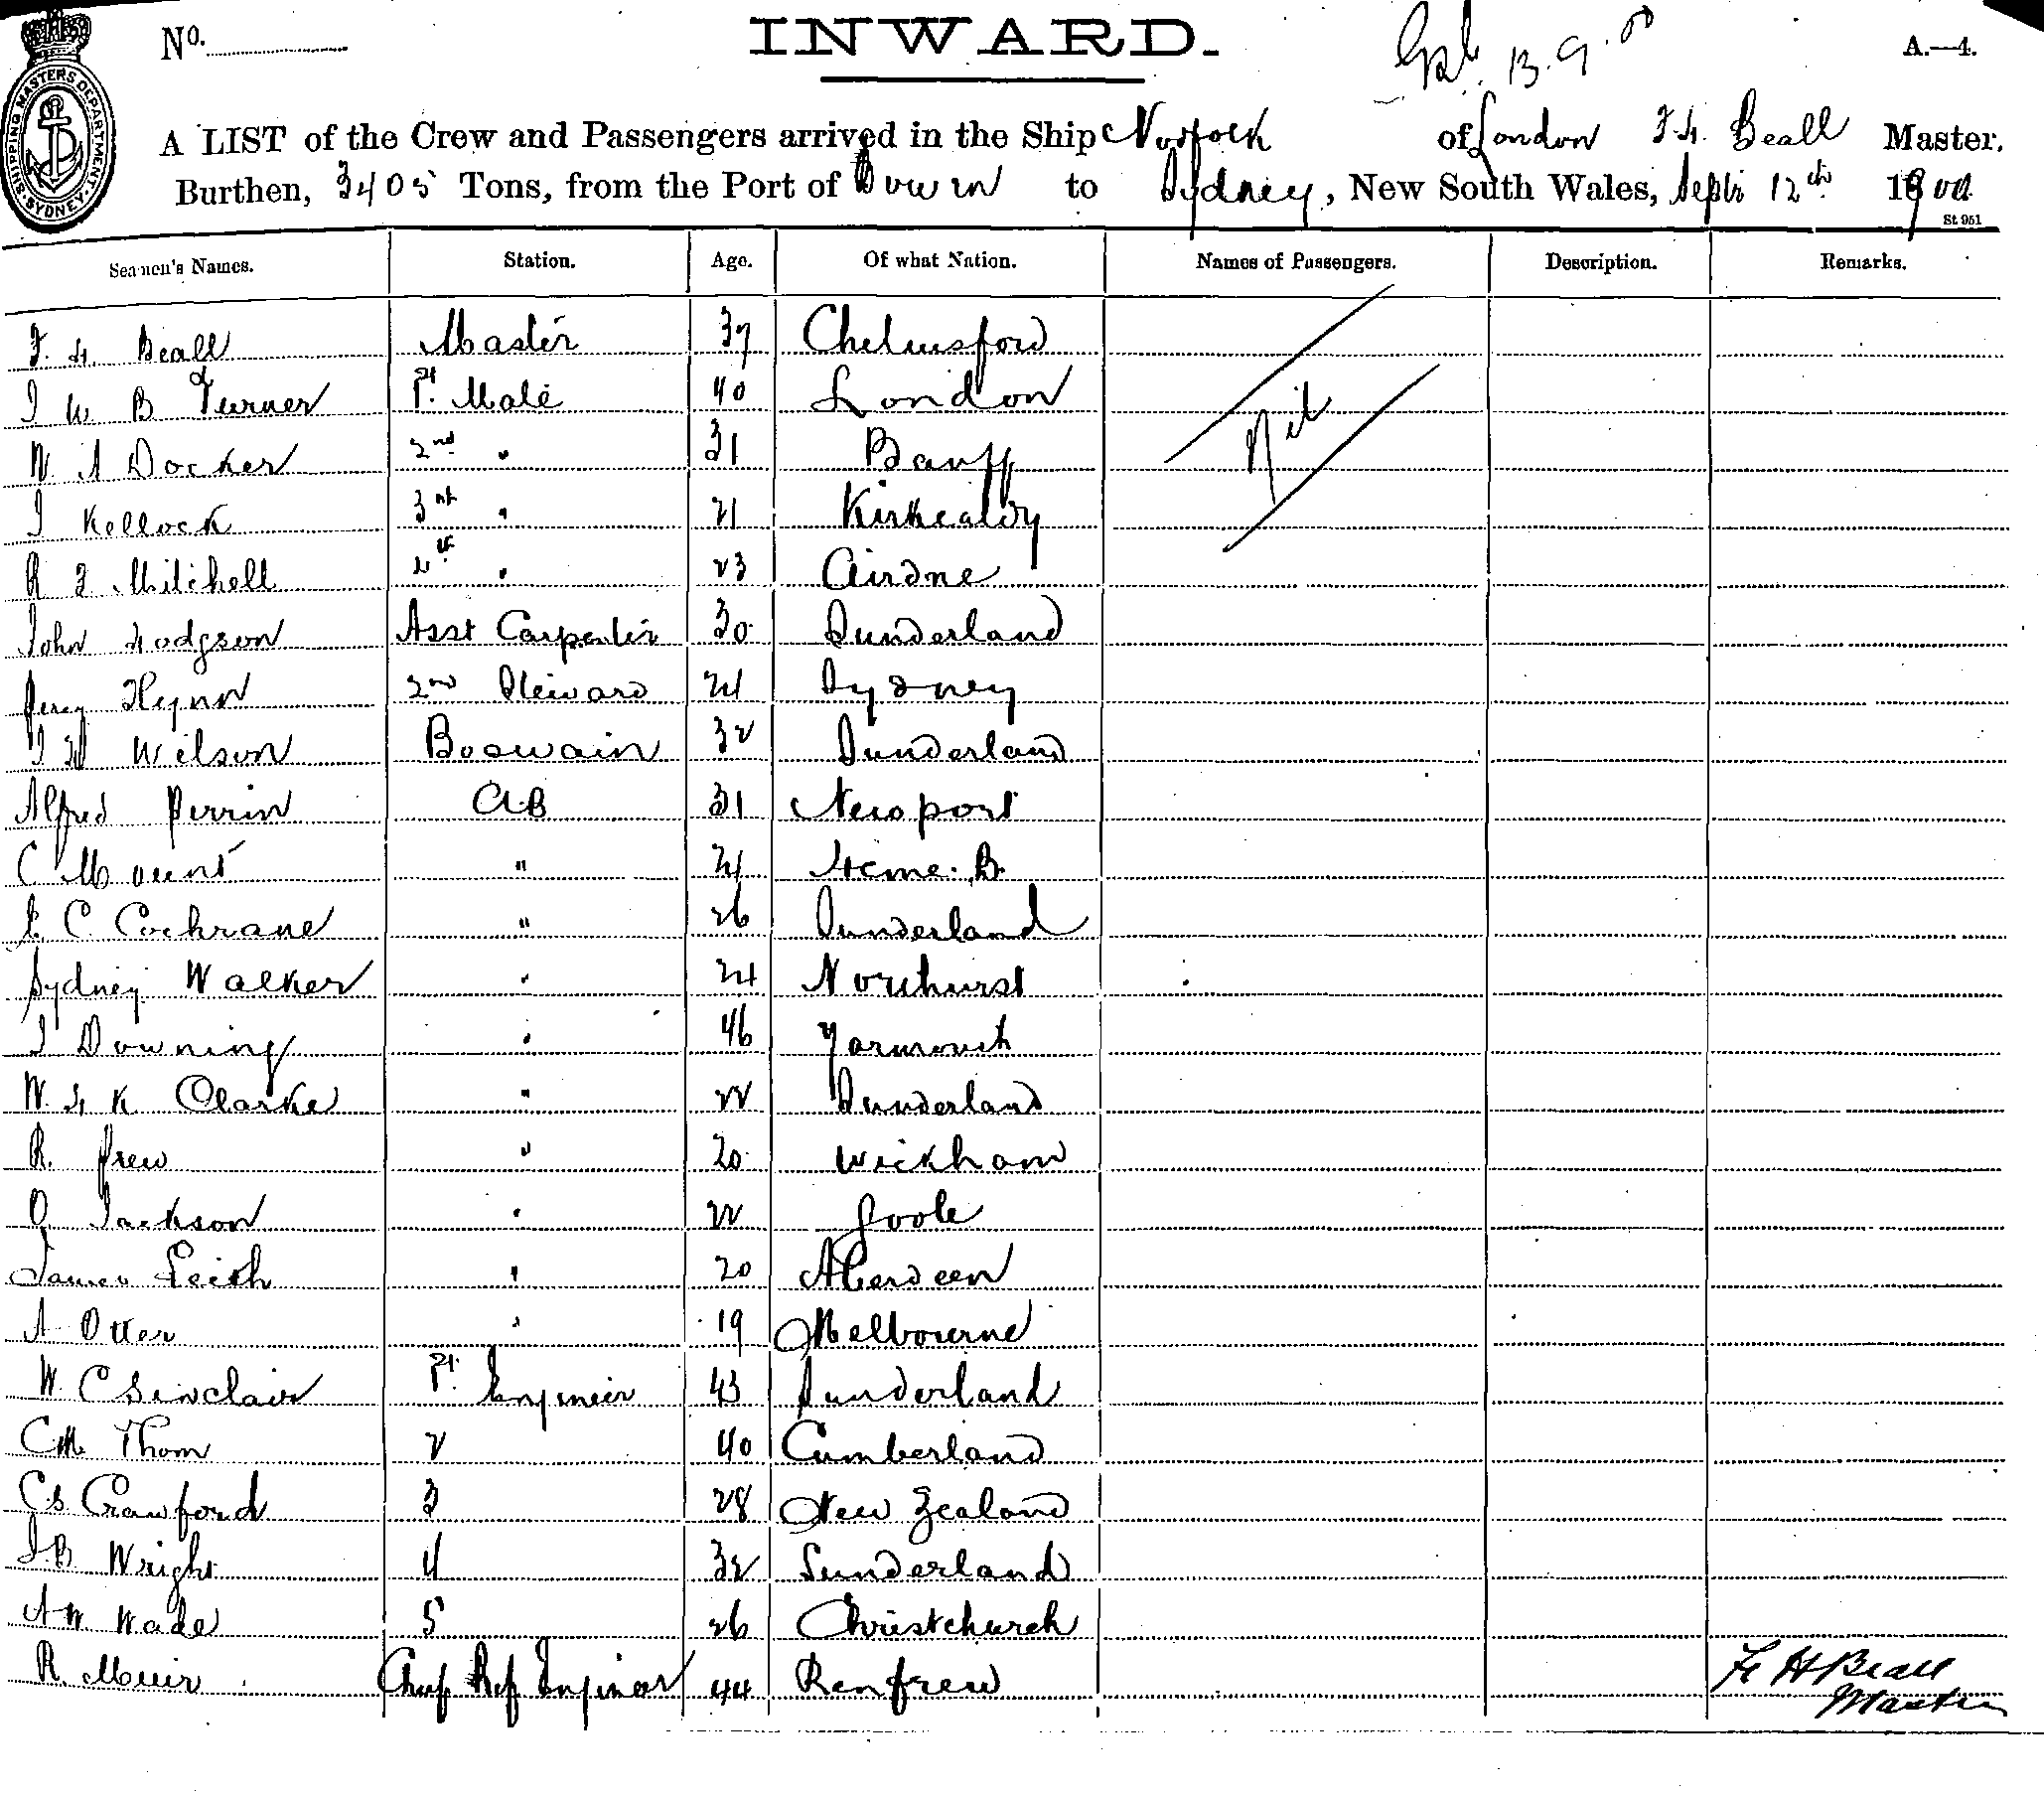 No.
INWARD.
13.9.00
A.—4.
SHIPPING MASTERS DEPARTMENT
SYDNEY
A LIST of the Crew and Passengers arrived in the Ship Norfolk of London F. H. Beall Master,
Burthen, 3405 Tons, from the Port of to Sydney, New South Wales, Septr 12th 1900
St 951
Seamen's Names. Station. Age. Of what Nation. Names of Passengers. Description. Remarks.
F. H. Beall Master 37 Chelmsford
J W B Turner 1st Mate 40 London
Nil
W A Docker 2nd " 31 Banff
J Kellock 3rd " 21 Kirkcaldy
R F Mitchell 4th " 23 Airdrie
John Hodgson Asst Carpenter 30 Sunderland
Percy Flynn 2nd Steward 24 Sydney
Wilson Boswain 32 Sunderland
Alfred Perrin AB 31 Newport
C Mount " 24 Herne B.
J. C. Cochrane " 26 Sunderland
Sydney Walker " 24
J Downing " 46 Yarmouth
W. H K Clarke " 22 Sunderland
R. Frew " 20 Wickham
O Jackson " 22 Goole
James Leith " 20 Aberdeen
A Otter " 19 Melbourne
W. C Sinclair 1st Engineer 43 Sunderland
C M Thom 2 40 Cumberland
C S Crawford 3 28 New Zealand
J. B. Wright 4 32 Sunderland
A W Wade 5 26 Christchurch
R. Muir Chief Ref Engineer 44 Renfrew
F H Beall
Master